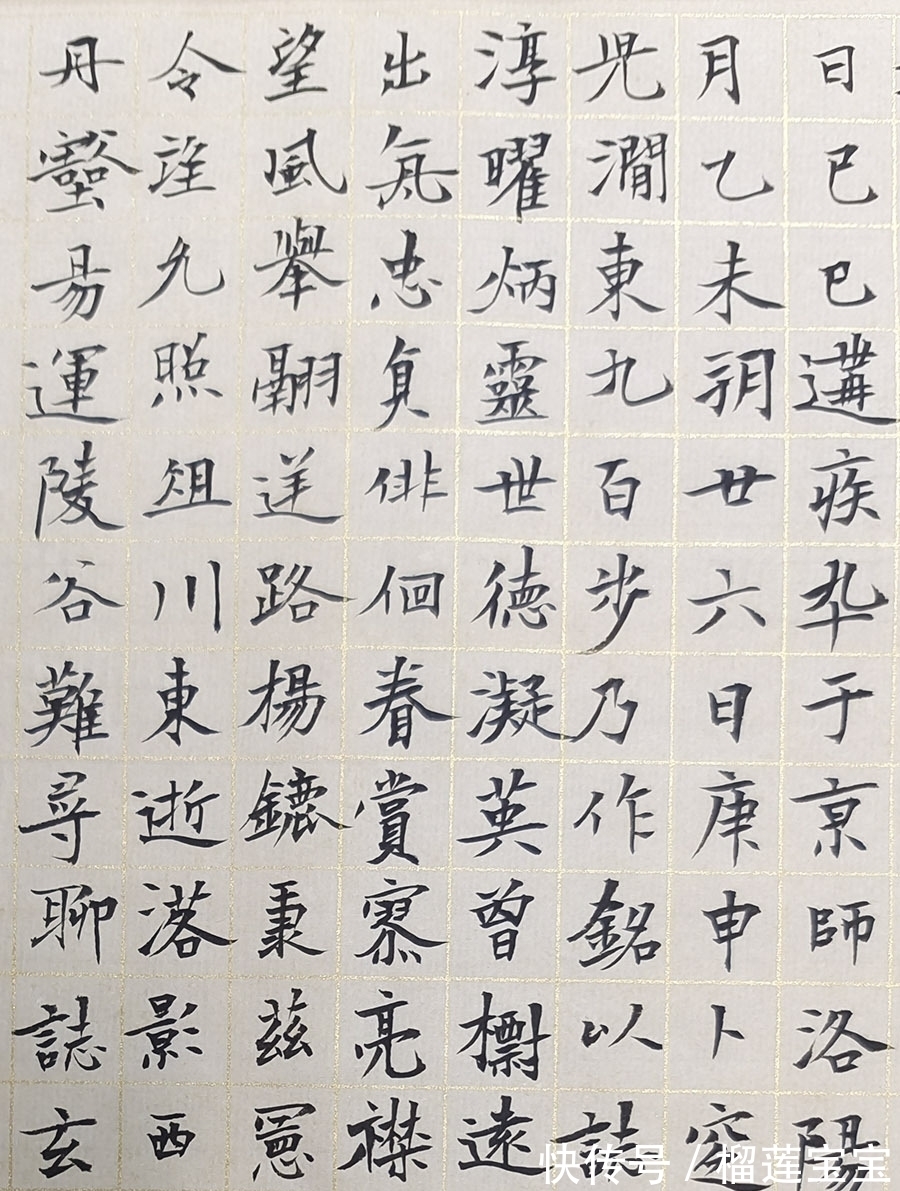 日巳巳遘疾卒于京師洛陽
月乙未朔廿六日庚申卜窆
兆澗東九百步乃作銘以誌
淳曜炳靈世德凝英曾檦遠
出氣忠貞俳佪眷賞寮亮襟
望風舉翮路楊鑣秉茲憲
令望允照爼川東逝落影西
丹壑易運陵谷難尋聊誌玄
快传号 / 榴莲宝宝